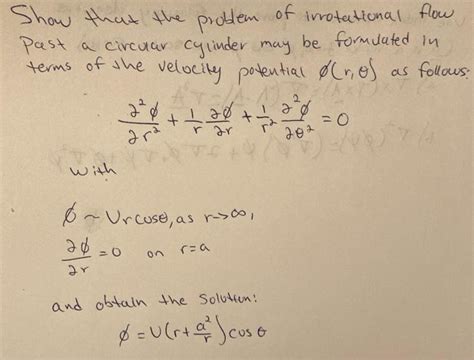 Show that the problem of irrotational flow
Past a circular cylinder may be formulated in
terms of the velocity potential ϕ(r,θ) as follows:
∂²ϕ/∂r² + 1/r ∂ϕ/∂r + 1/r² ∂²ϕ/∂θ² = 0
with
ϕ ~ Urcosθ, as r→∞,
∂ϕ/∂r = 0 on r=a
and obtain the Solution:
ϕ = U(r + a²/r) cos θ